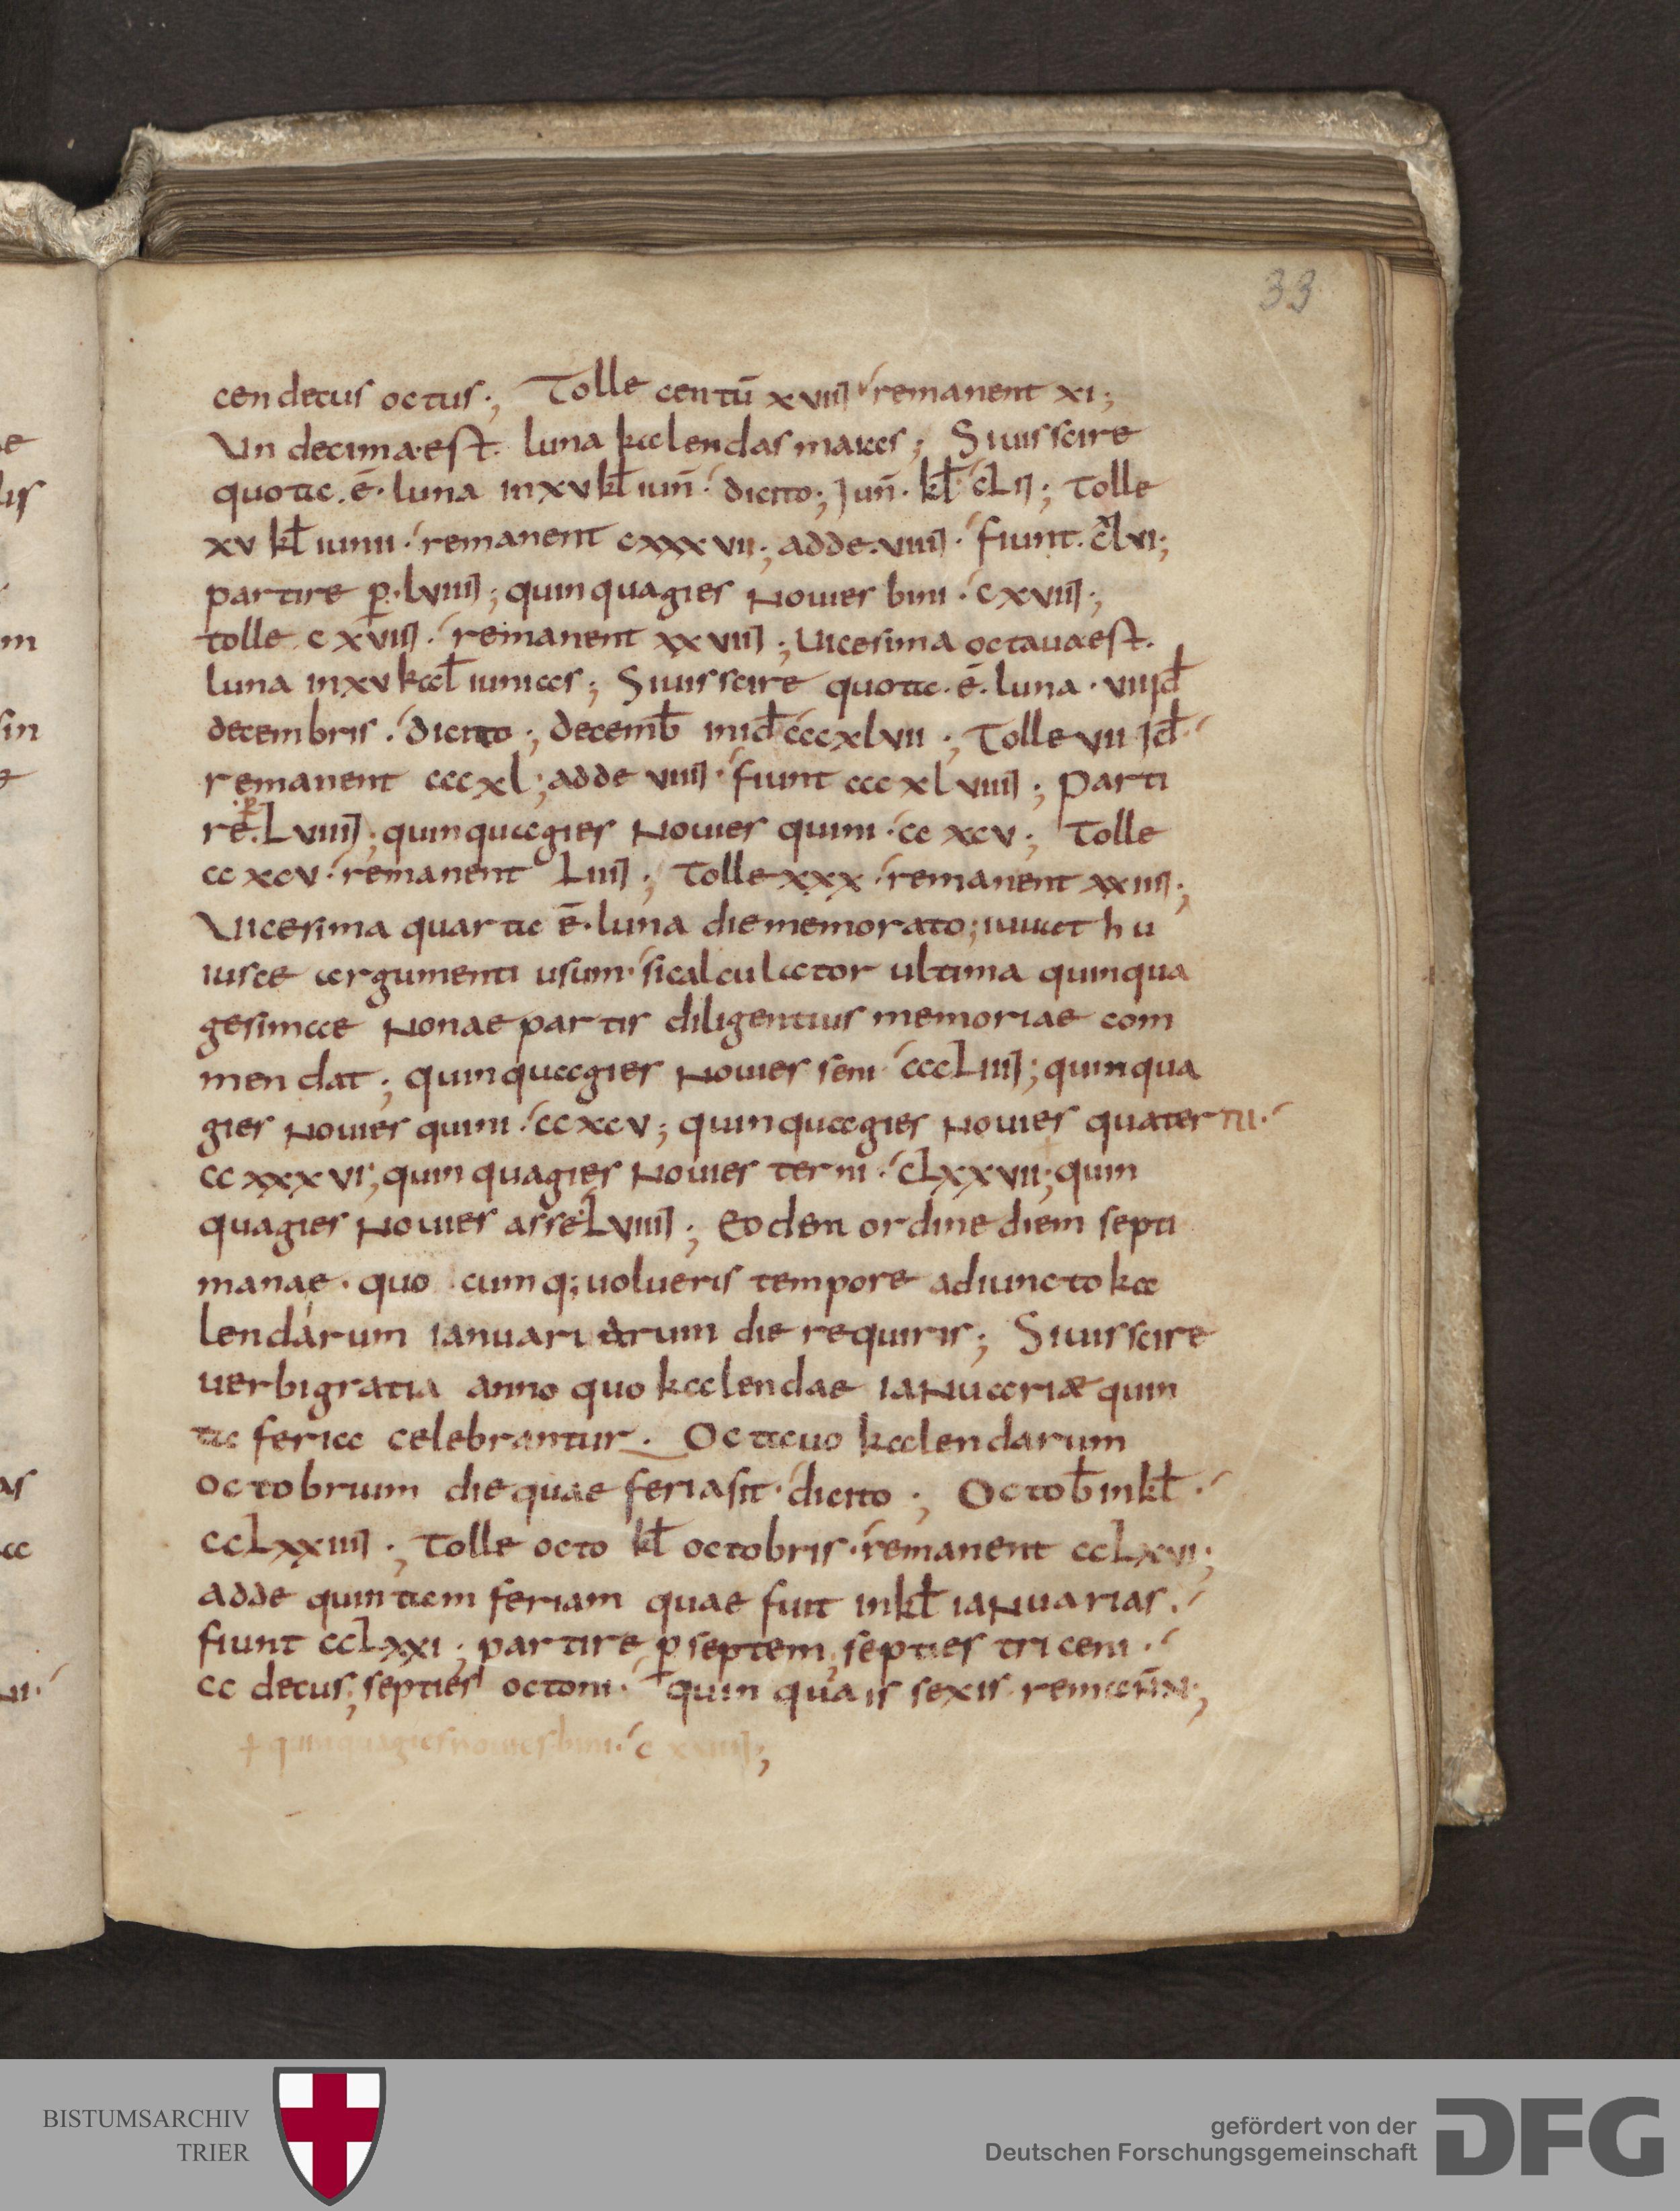 33
cendecus octus; Tolle centū xviiij remanent xi;
Undecima est luna kalendas maias; Si uis scire
quota .ē. luna in xv kł iun̄. dicito; Iun̄. kł clij; Tolle
xv kł iunii. remanent cxxxvii; adde. viiij. fiunt. cxlvi;
partire p̱. lviiij; quinquagies nouies bini. cxviij;
tolle cxviij. remanent xxviij; Uicesima octaua est.
luna in xv kal iunias; Si uis scire quota .ē. luna. vii id
decembris. dicito; decemƀ in iđ cccxlvii; Tolle vii Iđ
remanent cccxl; adde viiij. fiunt cccxlviiij; Parti
re p̱. Lviiij; quinquagies nouies quini. ccxcv; Tolle
ccxcv. remanent Liiij; Tolle xxx. remanent xxiiij;
Uicesima quarta ē. luna die memorato; iuuat hu
iusce argumenti usum. si calculator ultima quinqua
gesimae nonae partis diligentius memoriae com
mendat; quinquagies nouies seni cccLiiij; quinqua
gies nouies quini. ccxcv; quinquagies nouies quaterni.
ccxxxvi; quinquagies nouies terni. cLxxvii; quin
quagies nouies asse Lviiij; Eodem ordine diem septi
manae. quo cumq; uolueris tempore adiuncto ka
lendarum ianuariarum die requiris; Si uis scire
uerbi gratia anno quo kalendae ianuariæ quin
ta feria celebrantur. Octauo kalendarum
octobrum die quae feria sit. dicito; Octoƀ in kł.
ccLxxiiij; Tolle octo kł octobris. remanent ccLxvi;
adde quintam feriam quae fuit in kł ianuarias.
fiunt ccLxxi; partire p̱ septem; septies triceni.
cc decus; septies octoni. quinquais sexis remaūn;
+ quinquagies nouies bini. c xviiij;
BISTUMSARCHIV
TRIER
gefördert von der
Deutschen Forschungsgemeinschaft
DFG